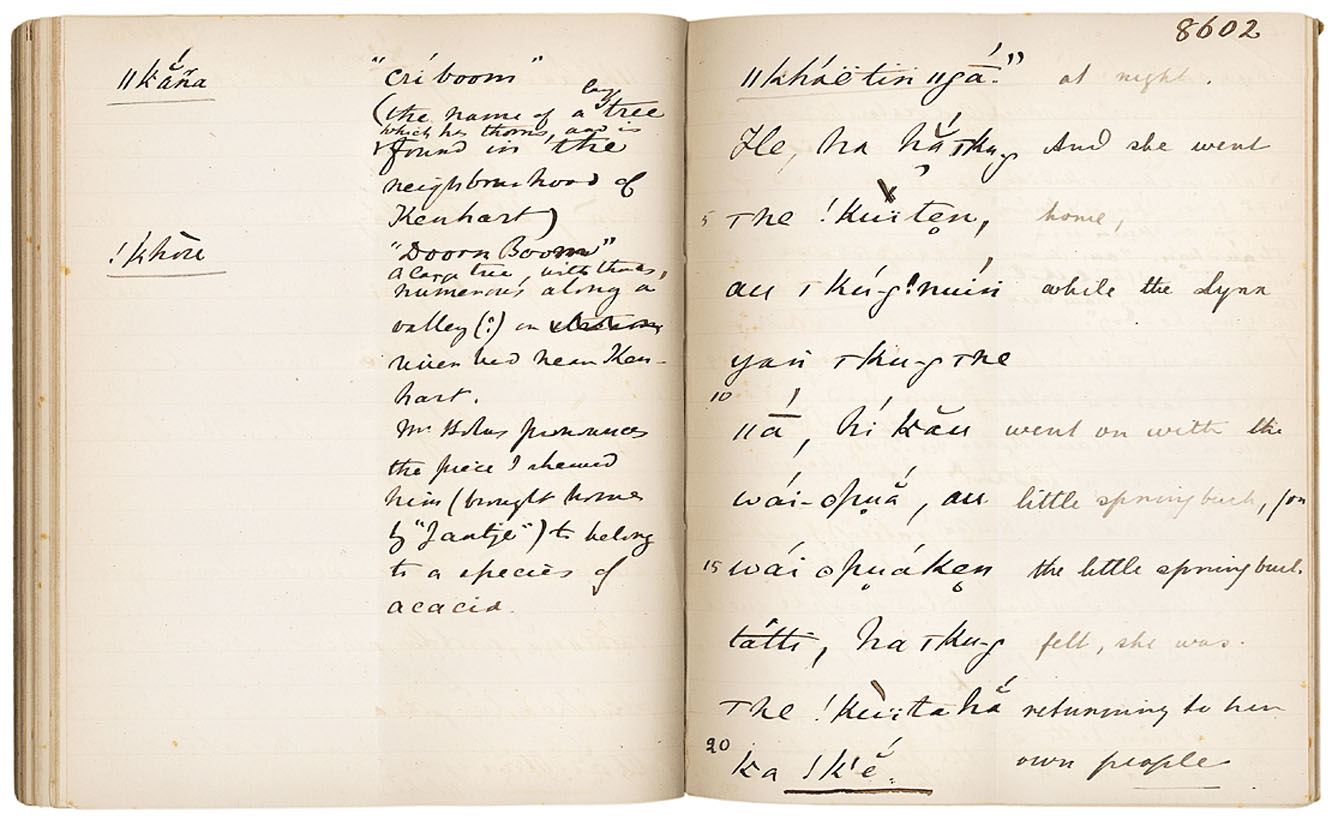 ǁkắṅa
"crí boom"
(the name of a large tree
which has thorns, and is
found in the
neighbourhood of
Kenhart)
!khòu
"Doorn Boom"
a large tree, with thorns,
numerous along a
valley (?) on
river bed near Ken-
hart.
Mr Bolus pronounces
the piece I shewed
him (brought home
by "Jantje") to belong
to a species of
acacia.
8602
ǁkháëtin ǁgā́." at night.
He, ha hắ ꞇkug And she went
5 ꞇhe !kùïtẹn, home,
au ꞇkúg!nuín while the Lynx
yaṅ ꞇkug ꞇhe
10
ǁā́, hí kău went on with the
wái-opuắ, au little springbuck, for
15 wái opuákẹn the little springbuck
tátti, ha ꞇkug felt, she was
ꞇhe !kùïta hắ returning to her
20 ka !k'ẽ́. own people